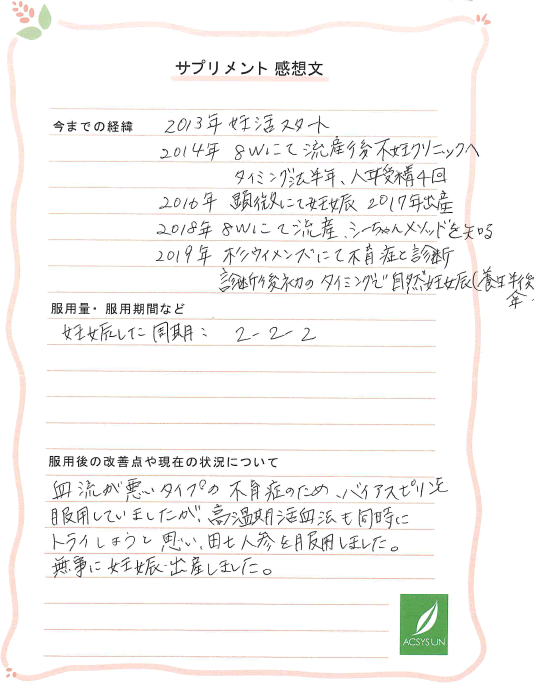 サプリメント 感想文
今までの経緯 2013年 妊活スタート
2014年 8Wにて流産後 不妊クリニックへ
タイミング法半年、人工受精4回
2016年 顕微にて妊娠 2017年出産
2018年 8Wにて流産、シーちゃんメソッドを知る
2019年 杉ウイメンズにて不育症と診断
診断後初のタイミングで自然妊娠(養生半年後
服用量・服用期間など
妊娠した周期: 2-2-2
服用後の改善点や現在の状況について
血流が悪いタイプの不育症のため、バイアスピリンを
服用していましたが、高温期活血法も同時に
トライしようと思い、田七人参を服用しました。
無事に妊娠・出産しました。
ACSYSUN